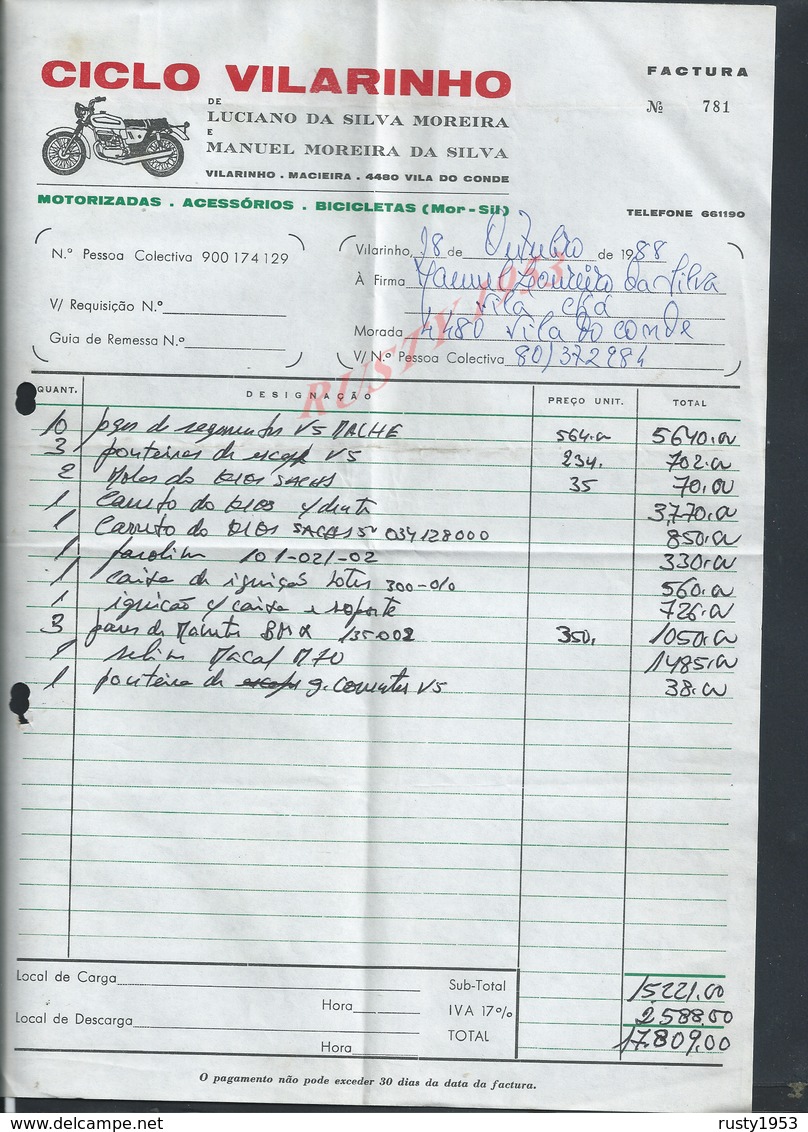 CICLO VILARINHO
FACTURA
Nº 781
DE
LUCIANO DA SILVA MOREIRA
E
MANUEL MOREIRA DA SILVA
VILARINHO . MACIEIRA . 4480 VILA DO CONDE
MOTORIZADAS . ACESSÓRIOS . BICICLETAS (Mor - Sil)
TELEFONE 661190
N.º Pessoa Colectiva 900174129
V/ Requisição N.º
Guia de Remessa N.º
Vilarinho, 18 de Outubro de 1988
À Firma Manuel da Silva
Vila Chã
Morada 4480 Vila do Conde
V/ N.º Pessoa Colectiva 801372984
RUSTY 1953
QUANT. DESIGNAÇÃO PREÇO UNIT. TOTAL
10 jogos de segmentos V5 MACHE 564.00 5640.00
3 ponteiras de escape V5 234. 702.00
2 Molas do SACHS 35 70.00
1 Carreto do 3,770.00
1 Carreto do SACHS 5V 034128000 850.00
1 farolim 101-021-02 330.00
1 caixa de ignição 300-010 560.00
1 ignição c/ caixa e suporte 726.00
3 pares de BMX 135-002 350. 1050.00
1 selim Macal M70 1485.00
1 ponteira de g. Correntes V5 38.00
Local de Carga
Hora
Local de Descarga
Hora
Sub-Total 15221.00
IVA 17% 2.588.00
TOTAL 17.809.00
O pagamento não pode exceder 30 dias da data da factura.
© delcampe.net
rusty1953